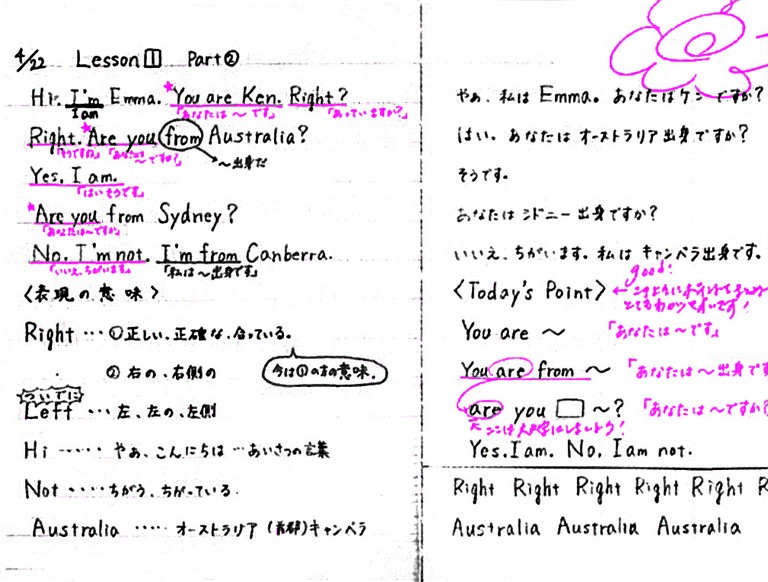 4/22 Lesson 1 Part②
Hi. I'm Emma. *You are Ken. Right?
I am 「あなたは〜です」 「あっていますか?」
Right. *Are you from Australia?
「そうですね」 「あなたは〜ですか?」 〜出身だ
Yes, I am.
「はいそうです」
*Are you from Sydney?
「あなたは〜ですか?」
No, I'm not. I'm from Canberra.
「いいえ、ちがいます」 「私は〜出身です」
〈表現の意味〉
Right … ①正しい、正確な、合っている。
② 右の、右側の
今は①の方の意味。
ついでに
Left … 左、左の、左側
Hi …… やぁ、こんにちは …あいさつの言葉
Not …… ちがう、ちがっている.
Australia …… オーストラリア (首都)キャンベラ
やぁ、私は Emma。あなたはケンですか?
はい。あなたは オーストラリア出身ですか?
そうです。
あなたは シドニー出身ですか?
いいえ、ちがいます。私は キャンベラ出身です。
good!
〈Today's Point〉 ←このようにポイントを
とてもわかりやすいです!
You are 〜 「あなたは〜です」
You are from 〜 「あなたは〜出身です
are you □ 〜? 「あなたは〜ですか?
ここは大文字にしましょう!
Yes. I am. No, I am not.
Right Right Right Right Right R
Australia Australia Australia